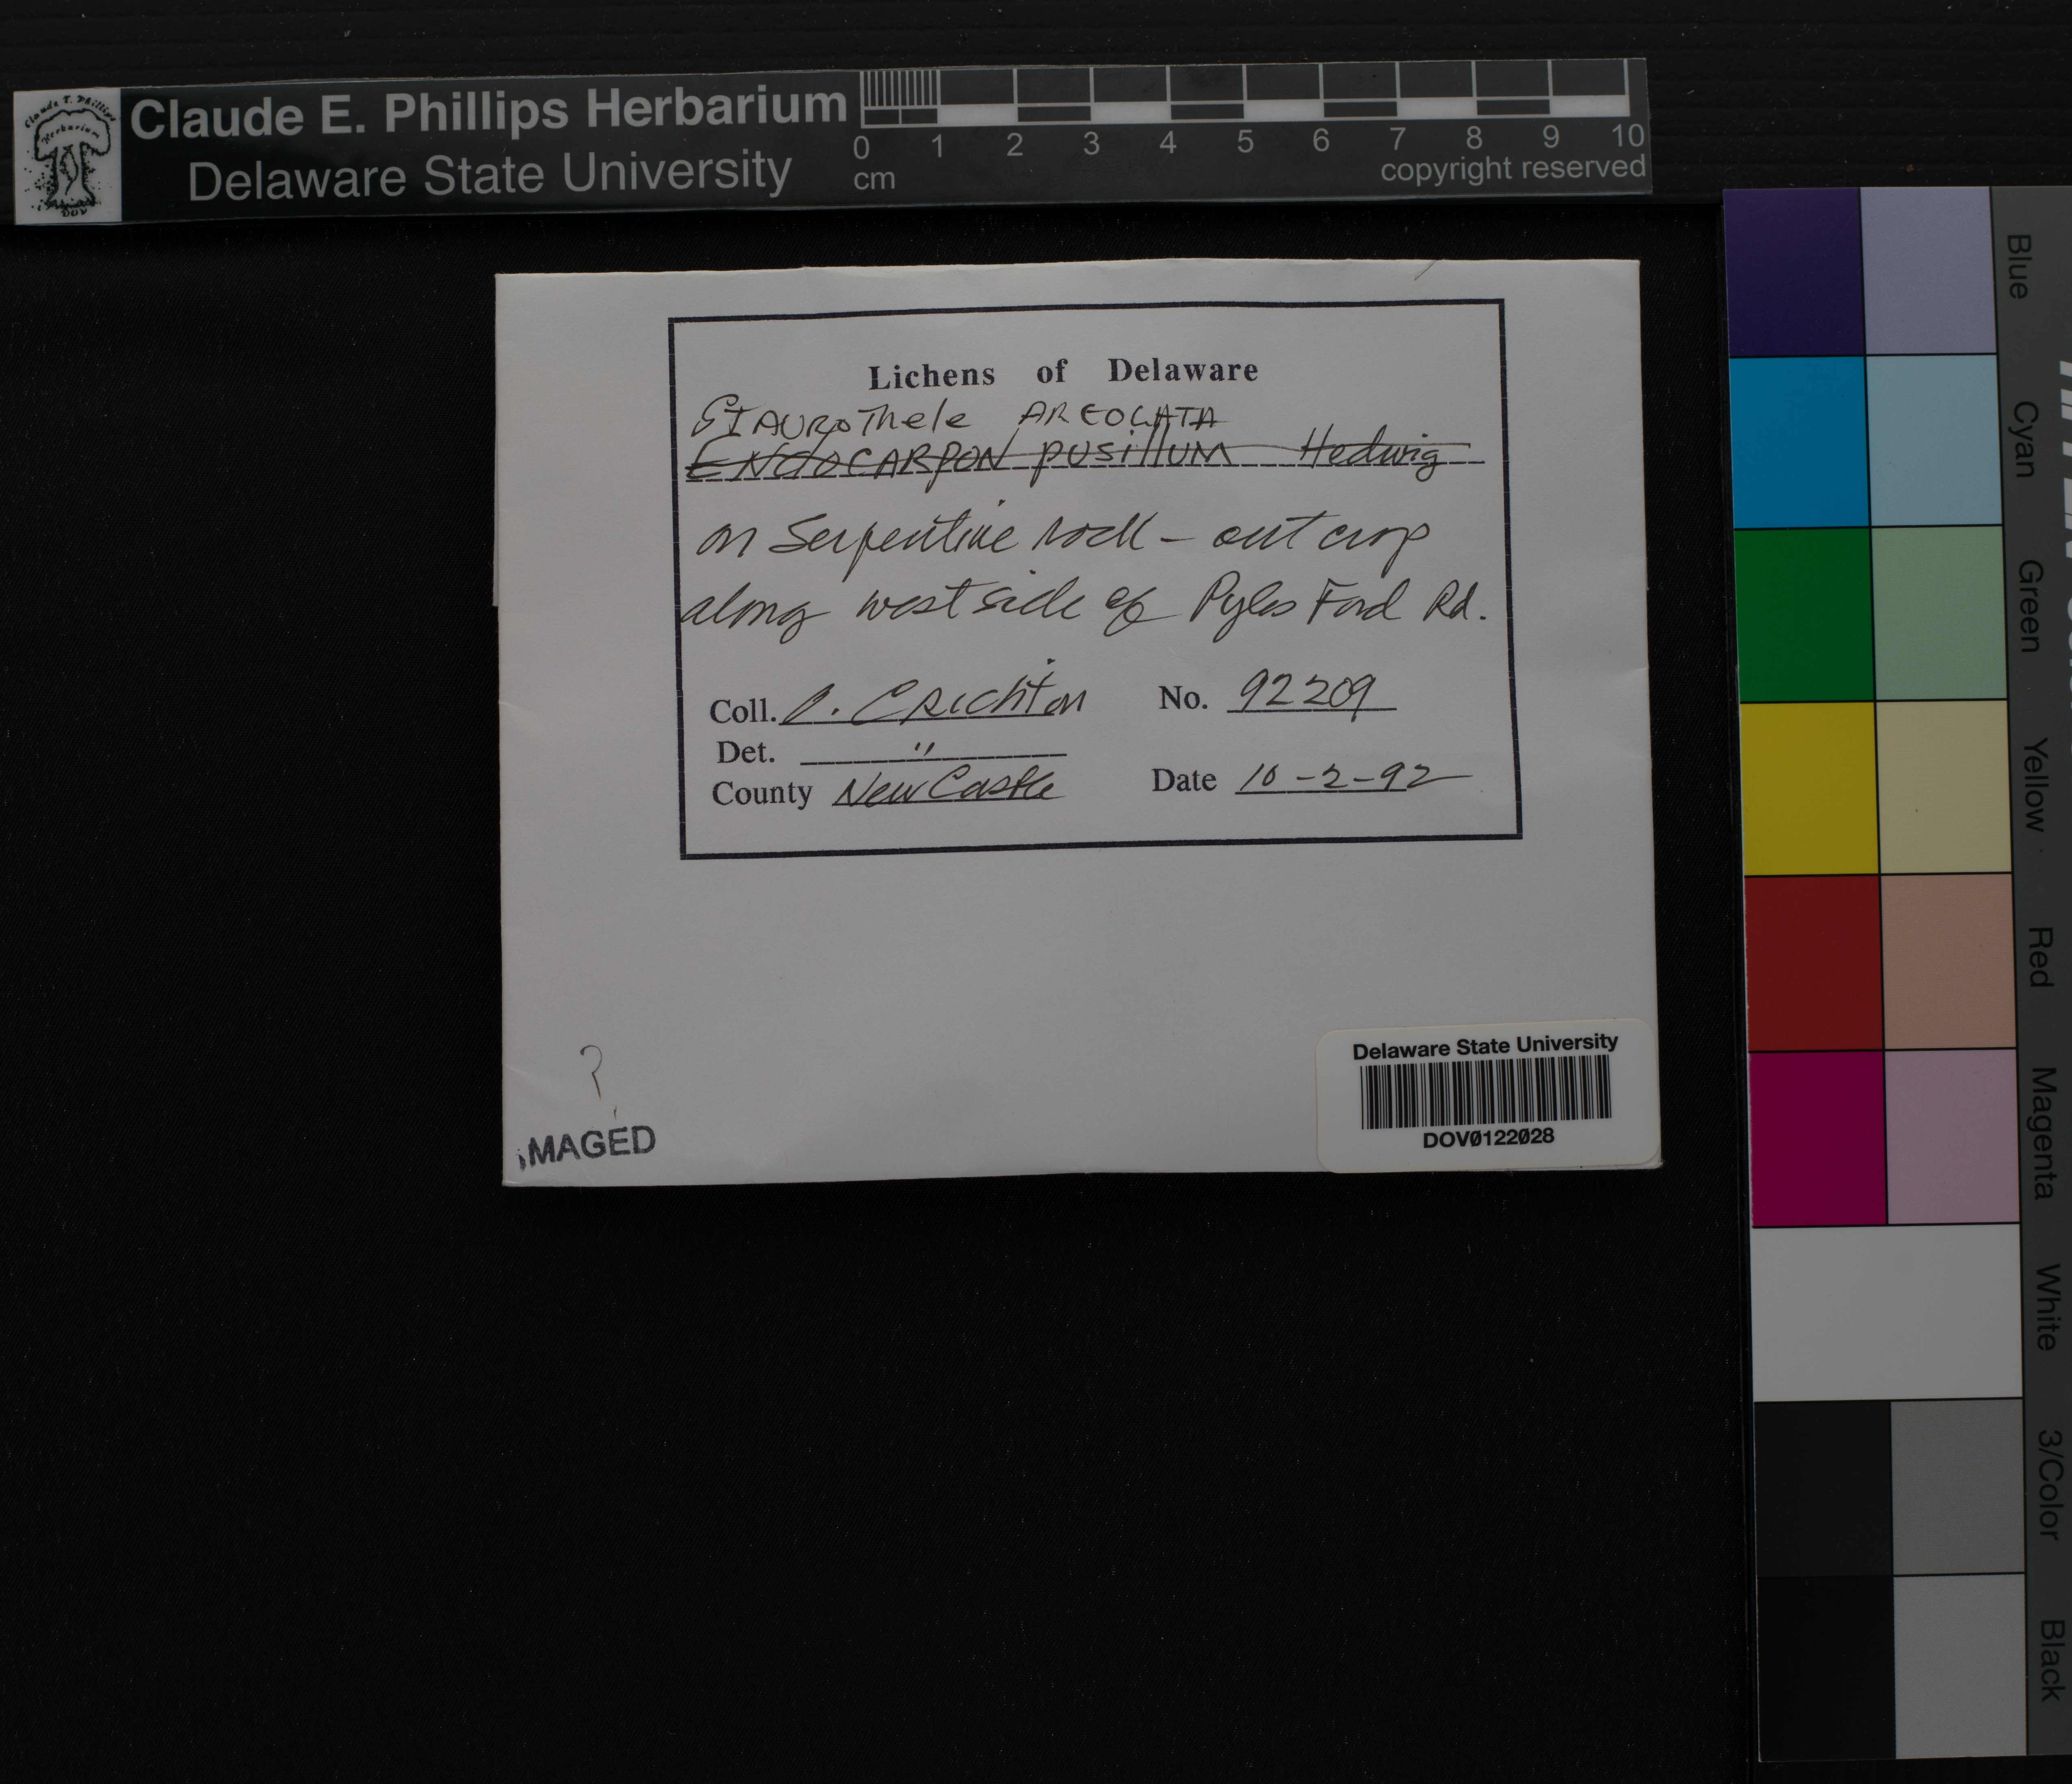 Claude E. Phillips Herbarium
Delaware State University
0 1 2 3 4 5 6 7 8 9 10
cm
copyright reserved
Lichens of Delaware
STAUROThele AREOLATA
ENdOCARPON pusillUM Hedwig
on Serpentine rock - out crop
along west side of Pyles Ford Rd.
Coll. O. CRichton No. 92209
Det. "
County New Castle Date 10-2-92
?
IMAGED
Delaware State University
DOV0122028
Blue
Cyan
Green
Yellow
Red
Magenta
White
3/Color
Black